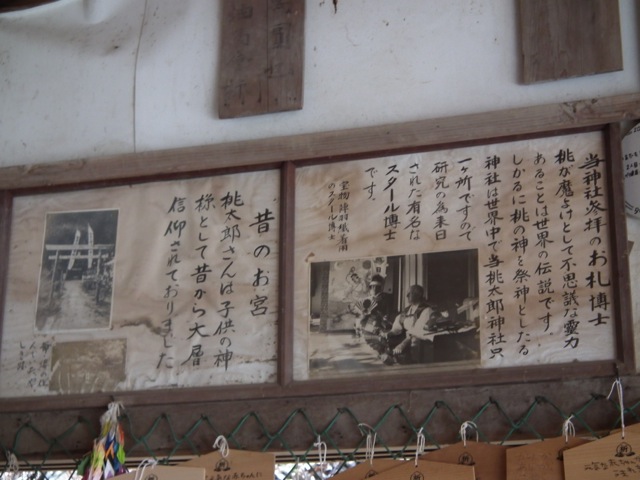 当神社参拝のお札博士
桃が魔よけとして不思議な霊力
あることは世界の伝説です、
しかるに桃の神を祭神としたる
神社は世界中で当桃太郎神社只
一ヶ所ですので
研究の為来日
された有名な
スタール博士
です。
のスタール博士
昔のお宮
桃太郎さんは子供の神
様として昔から大層
信仰されておりました